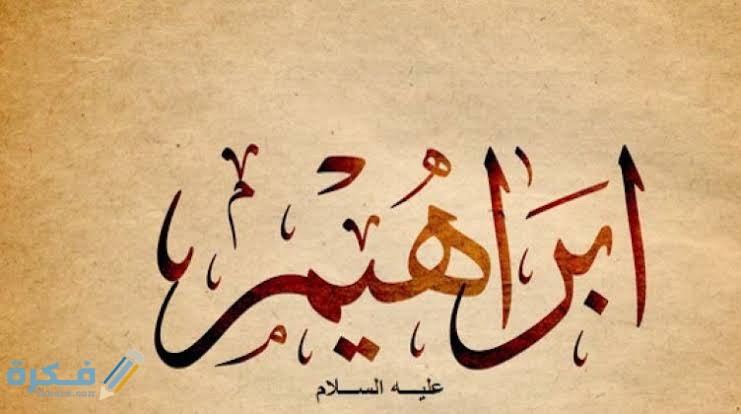 ابراهيم
عليه السلام
فكرة